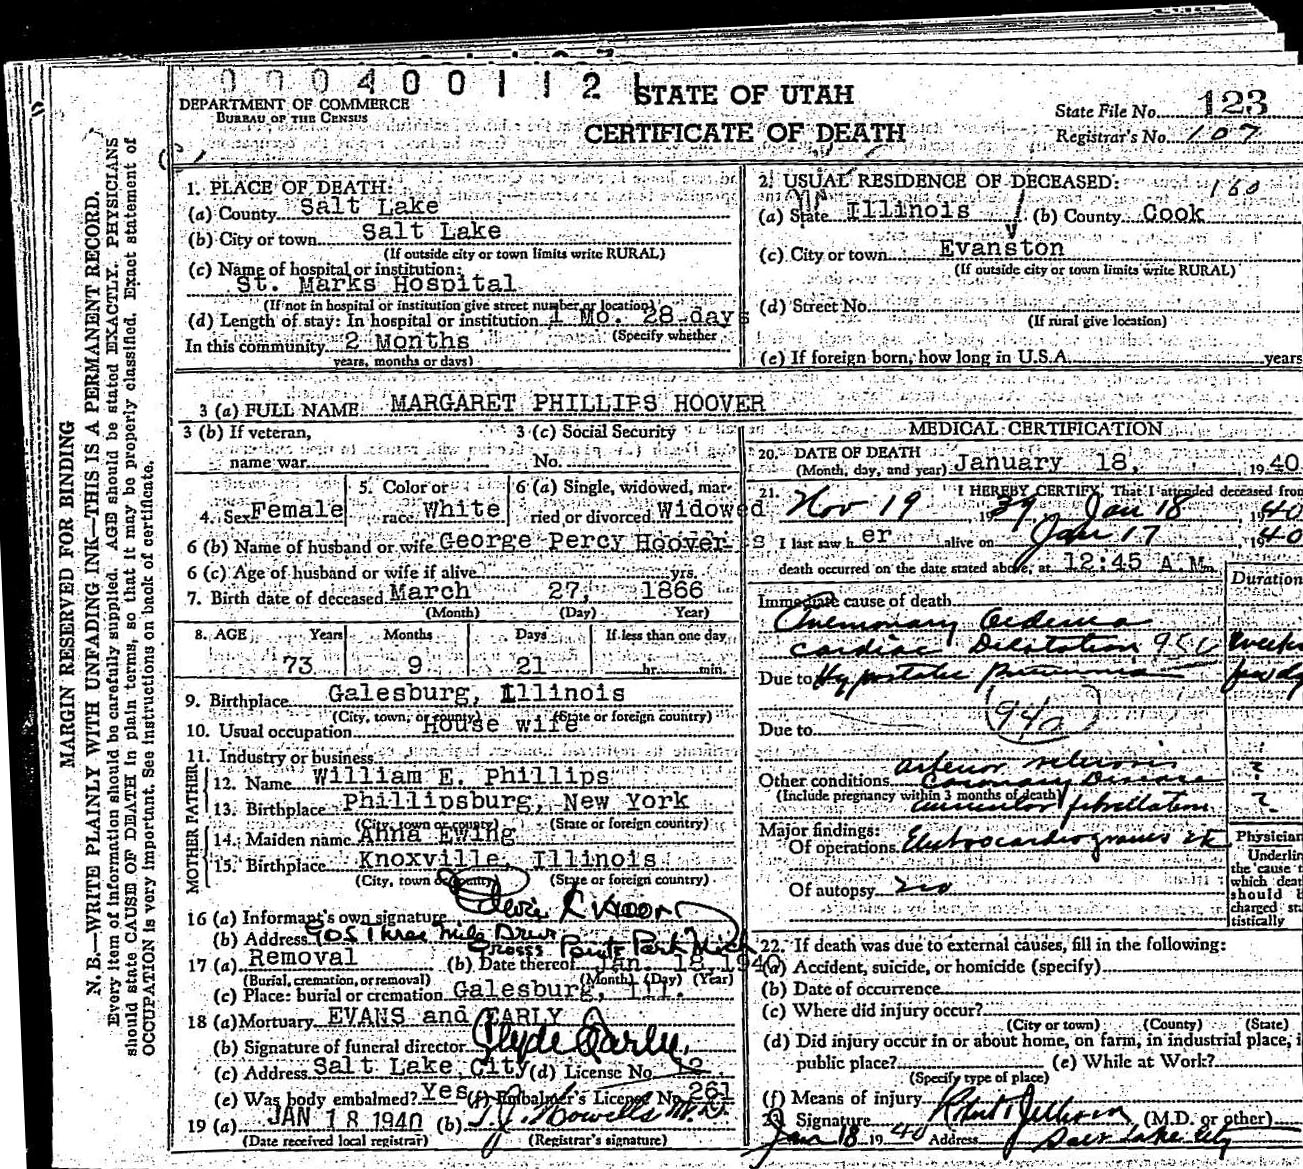 000400112
STATE OF UTAH
CERTIFICATE OF DEATH
DEPARTMENT OF COMMERCE
BUREAU OF THE CENSUS
State File No. 123
Registrar's No. 107
MARGIN RESERVED FOR BINDING
N. B.—WRITE PLAINLY WITH UNFADING INK—THIS IS A PERMANENT RECORD.
Every item of information should be carefully supplied. AGE should be stated EXACTLY. PHYSICIANS
should state CAUSE OF DEATH in plain terms, so that it may be properly classified. Exact statement of
OCCUPATION is very important. See instructions on back of certificate.
1. PLACE OF DEATH:
(a) County Salt Lake
(b) City or town Salt Lake
(If outside city or town limits write RURAL)
(c) Name of hospital or institution:
St. Marks Hospital
(If not in hospital or institution give street number or location)
(d) Length of stay: In hospital or institution 1 Mo. 28 days
(Specify whether
In this community 2 Months
years, months or days)
2. USUAL RESIDENCE OF DECEASED: 160
(a) State Illinois (b) County Cook
(c) City or town Evanston
(If outside city or town limits write RURAL)
(d) Street No.
(If rural give location)
(e) If foreign born, how long in U.S.A. years
3 (a) FULL NAME MARGARET PHILLIPS HOOVER
3 (b) If veteran, 3 (c) Social Security
name war No.
4. Sex Female 5. Color or race White 6 (a) Single, widowed, married or divorced Widowed
6 (b) Name of husband or wife George Percy Hoover
6 (c) Age of husband or wife if alive yrs.
7. Birth date of deceased March 27, 1866
(Month) (Day) Year)
8. AGE Years Months Days If less than one day
73 9 21 hr. min.
9. Birthplace Galesburg, Illinois
(City, town, or county) (State or foreign country)
10. Usual occupation House wife
11. Industry or business
FATHER
12. Name William E. Phillips
13. Birthplace Phillipsburg, New York
(City, town or county) (State or foreign country)
MOTHER
14. Maiden name Anna Ewing
15. Birthplace Knoxville, Illinois
(City, town or county) (State or foreign country)
16 (a) Informant's own signature
(b) Address 905 Three Mile Drive
Grosse Pointe Park Mich
17 (a) Removal (b) Date thereof Jan. 18, 1940
(Burial, cremation, or removal) (Month) (Day) (Year)
(c) Place: burial or cremation Galesburg, Ill.
18 (a) Mortuary EVANS and EARLY
(b) Signature of funeral director Clyde Early
(c) Address Salt Lake City (d) License No. 2
(e) Was body embalmed? Yes (f) Embalmer's License No. 261
19 (a) JAN 18 1940 (b) T.J. Howells M.D.
(Date received local registrar) (Registrar's signature)
MEDICAL CERTIFICATION
20. DATE OF DEATH
(Month, day, and year) January 18, 1940
21. I HEREBY CERTIFY, That I attended deceased from
Nov 19 1939 Jan 18 1940
I last saw h er alive on Jan 17 1940
death occurred on the date stated above, at 12:45 A.M.
Duration
Immediate cause of death
Pulmonary Oedema
Cardiac Dilatation 95c weeks
Due to Hypostatic Pneumonia few dy
94a
Due to
arterior sclerosis ?
Other conditions Coronary Disease
(Include pregnancy within 3 months of death)
auricular fibrillation ?
Major findings:
Of operations Electrocardiograms
Of autopsy no
Physician
Underlin
the cause t
which deat
should b
charged sta
tistically
22. If death was due to external causes, fill in the following:
(a) Accident, suicide, or homicide (specify)
(b) Date of occurrence
(c) Where did injury occur?
(City or town) (County) (State)
(d) Did injury occur in or about home, on farm, in industrial place, i
public place? (e) While at Work?
(Specify type of place)
(f) Means of injury
23. Signature (M.D. or other)
Jan 18 1940 Address Salt Lake City